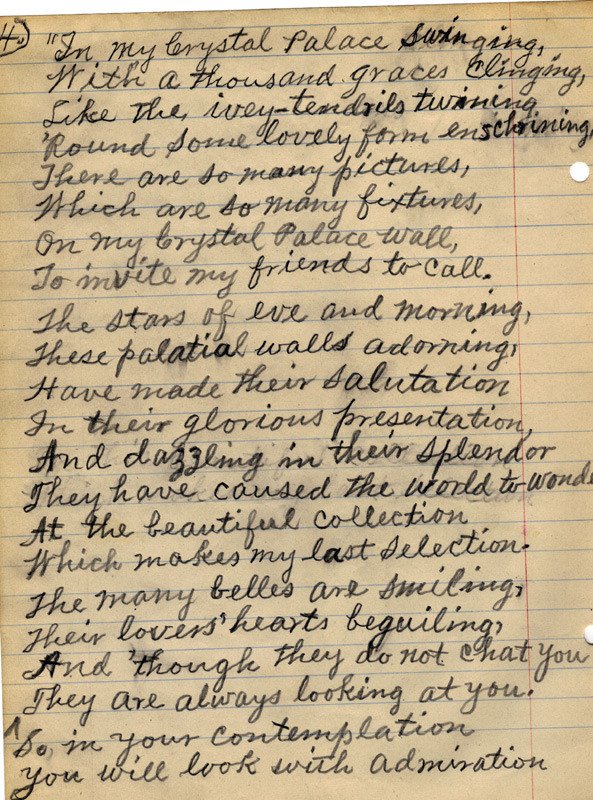 4.) "In my Crystal Palace swinging,
With a thousand graces clinging,
Like the, ivey-tendrils twining
'Round some lovely form enschrining,
There are so many pictures,
Which are so many fixtures,
On my Crystal Palace wall,
To invite my friends to call.
The stars of eve and morning,
These palatial walls adorning,
Have made their salutation
In their glorious presentation,
And dazzling in their splendor
They have caused the world to wonde
At the beautiful collection
Which makes my last selection.
The many belles are smiling,
Their lovers' hearts beguiling,
And 'though they do not chat you
They are always looking at you.
So, in your contemplation
You will look with admiration